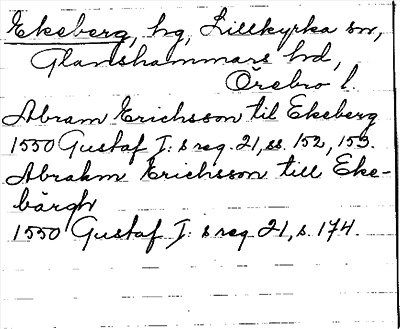 Ekeberg, hg, Lillkyrka sn,
Glanshammars hd,
Örebro l.
Abram Erichsson til Ekeberg
1550 Gustaf I:s reg. 21, ss. 152, 153.
Abrahm Erichsson till Eke-
bärgh
1550 Gustaf I:s reg 21, s. 174.